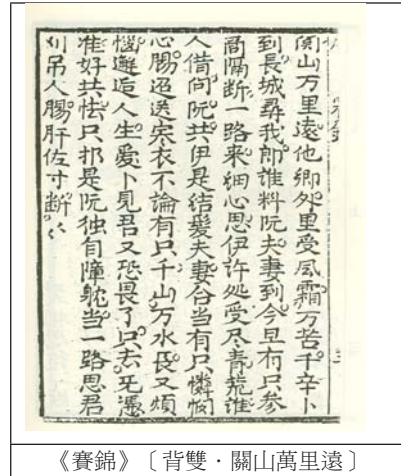 関山万里遠他鄉外里受風霜万苦千辛卜
到長城尋我郎誰料阮夫妻到今旦冇只参
商隔断一路来細心思伊许処受尽青荒誰
人借问阮共伊是結髮夫妻台当有只憐悯
心腸迢送寒衣不論有只千山万水長又煩
惱邂逅人生愛卜見君又恐畏了只去旡憑
准好共怯只扒是阮独自障躭当一路思君
刈吊人腸肝佐寸断〱
《賽錦》〔背雙・關山萬里遠〕